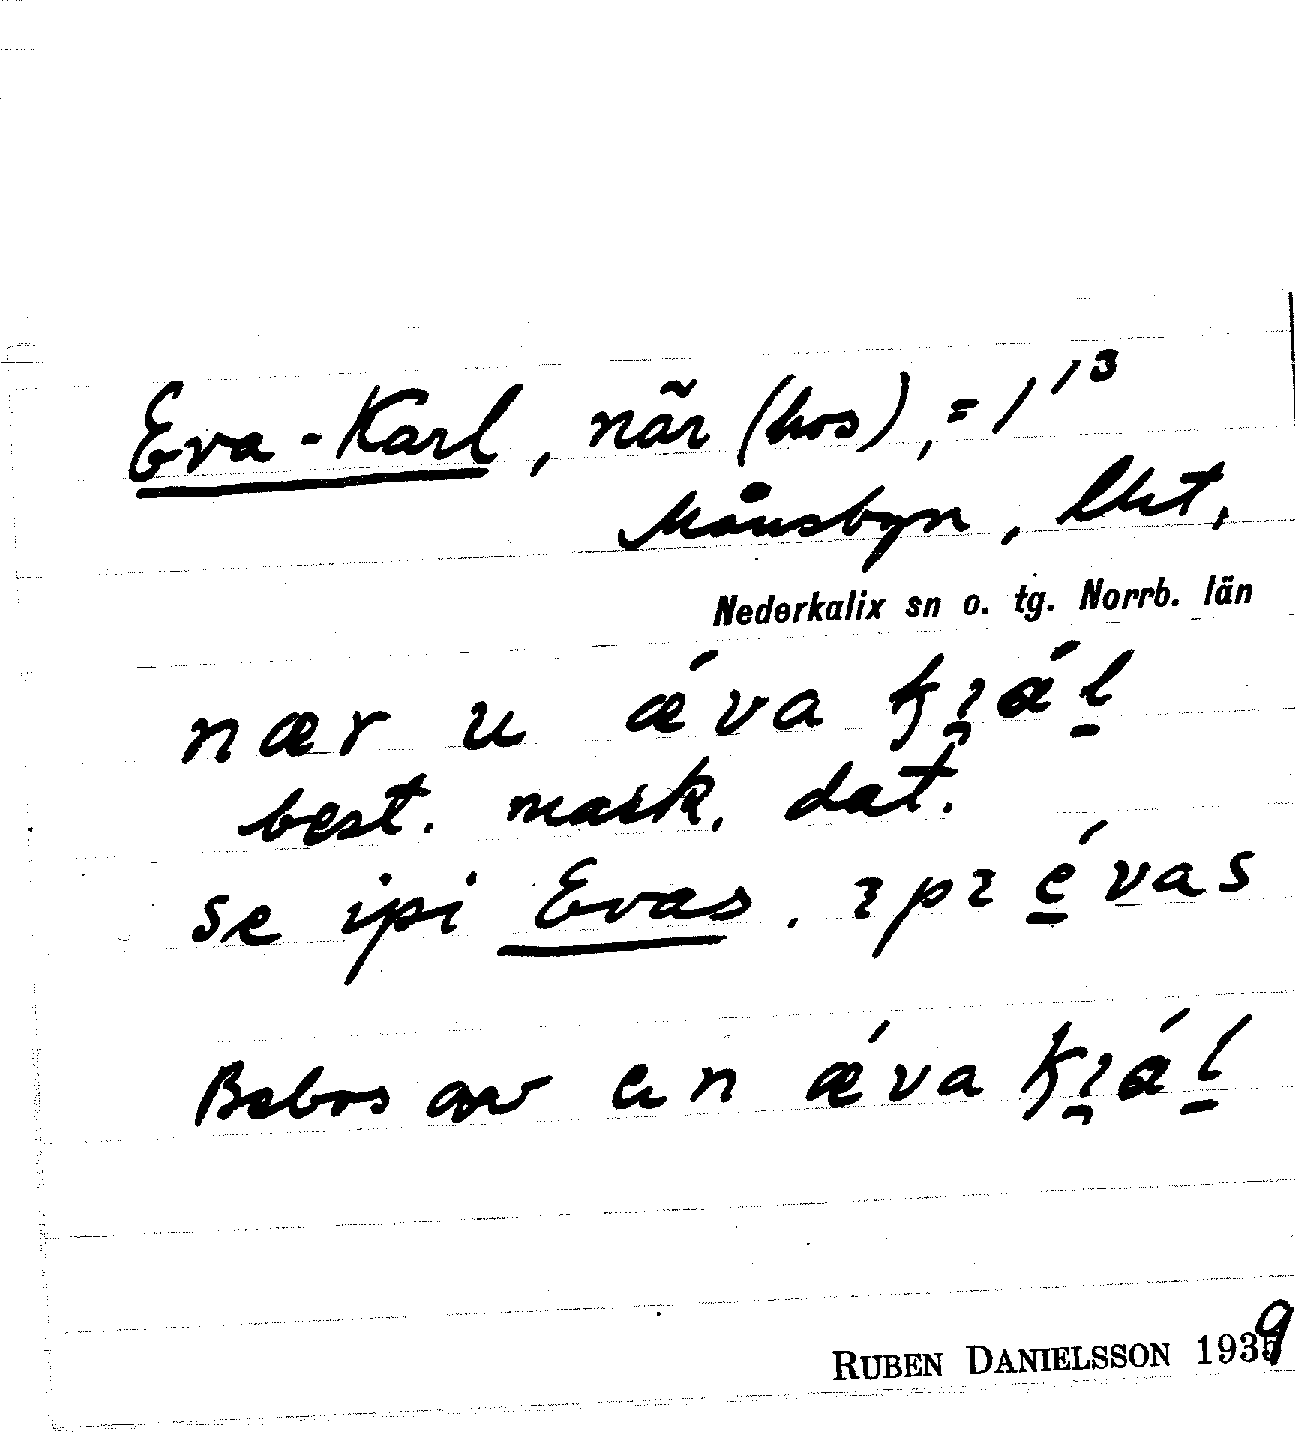 Eva-Karl, när (hos), = 1¹³
Månsbyn, lht,
Nederkalix sn o. tg. Norrb. län
nær u ǽva kɿál
best. mask. dat.
se ipi Evas. ɿpɿ évas
Bebos av en ǽva kɿál
RUBEN DANIELSSON 1939